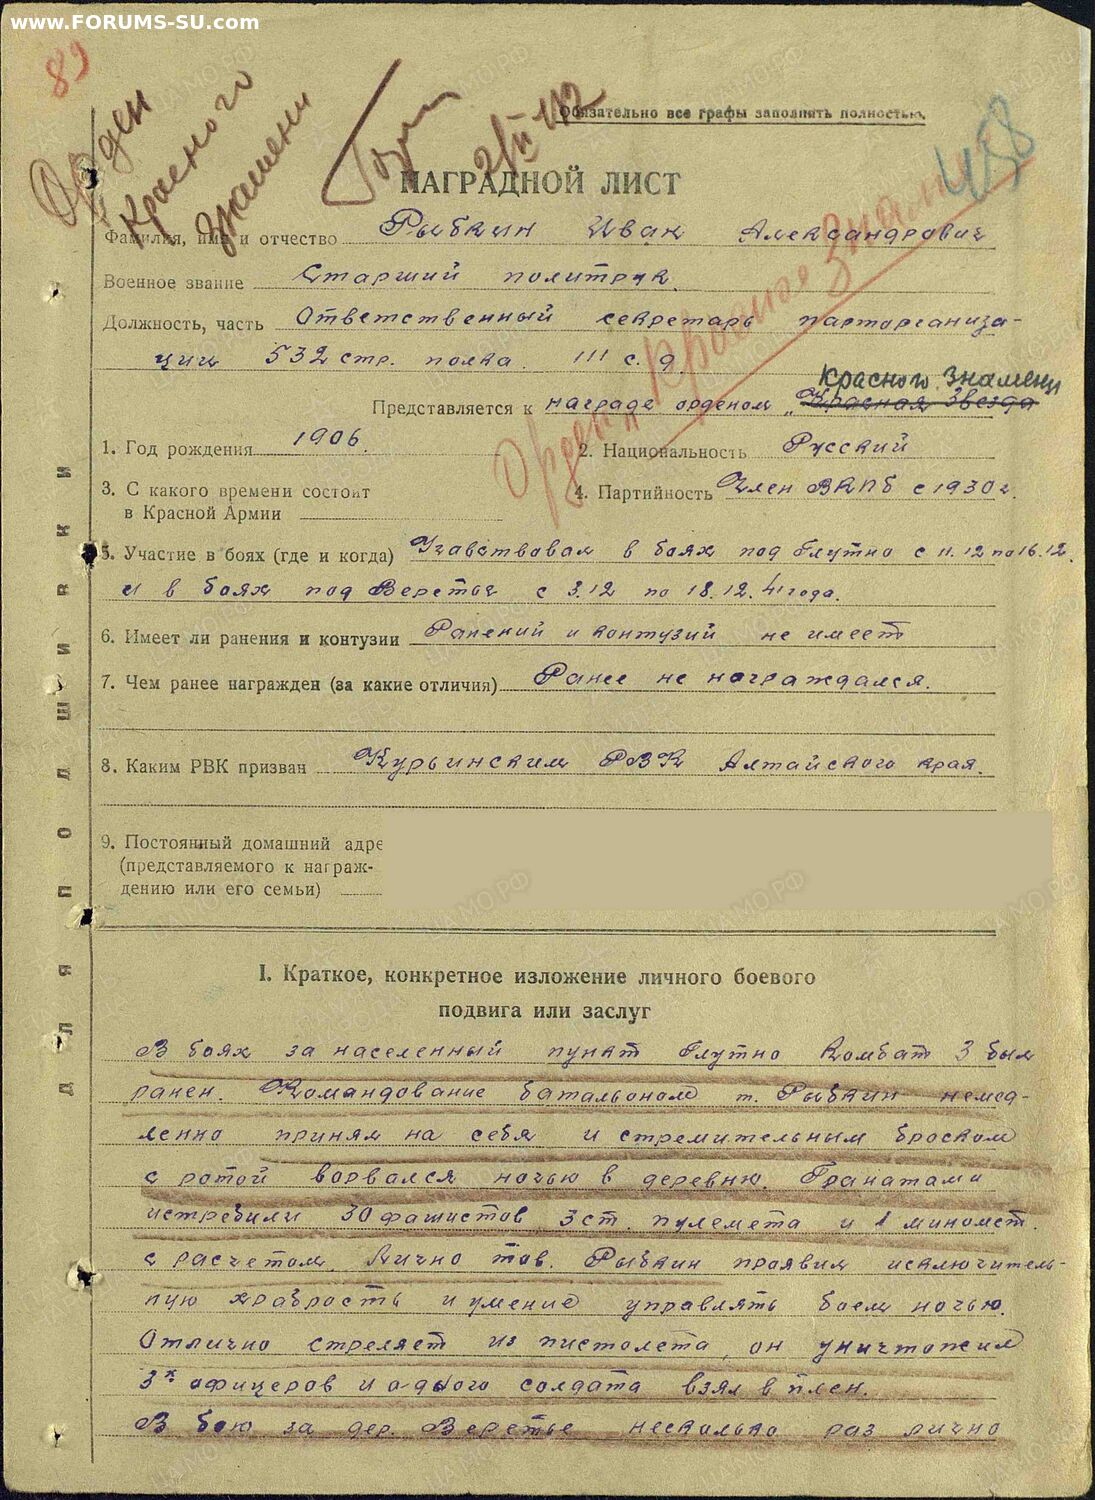 www.FORUMS-SU.com
89
Орден
Красного
Знамени
2/II 42
Обязательно все графы заполнять полностью.
458
НАГРАДНОЙ ЛИСТ
Орден Красное Знамя
Фамилия, имя и отчество Рыбкин Иван Александрович
Военное звание Старший политрук.
Должность, часть Ответственный секретарь парторганиза-
ции 532 стр. полка. 111 с. д.
Красного Знамени
Представляется к награде орденом „Красная Звезда
1. Год рождения 1906.
2. Национальность Русский
3. С какого времени состоит
в Красной Армии
4. Партийность Член ВКПб с 1930 г.
5. Участие в боях (где и когда) Участвовал в боях под Глутно с 11.12 по 16.12.
и в боях под Веретье с 3.12 по 18.12.41 года.
6. Имеет ли ранения и контузии Ранений и контузий не имеет
7. Чем ранее награжден (за какие отличия) Ранее не награждался.
8. Каким РВК призван Курьинским РВК Алтайского края.
9. Постоянный домашний адре
(представляемого к награж-
дению или его семьи)
Для подшивки
I. Краткое, конкретное изложение личного боевого
подвига или заслуг
В боях за населенный пункт Глутно Комбат 3 был
ранен. Командование батальоном т. Рыбкин немед-
ленно принял на себя и стремительным броском
с ротой ворвался ночью в деревню. Гранатами
истребили 30 фашистов 3 ст. пулемета и 1 миномет.
с расчетом. Лично тов. Рыбкин проявил исключитель-
ную храбрость и умение управлять боем ночью.
Отлично стреляет из пистолета, он уничтожил
3х офицеров и одного солдата взял в плен.
В бою за дер. Веретье несколько раз лично